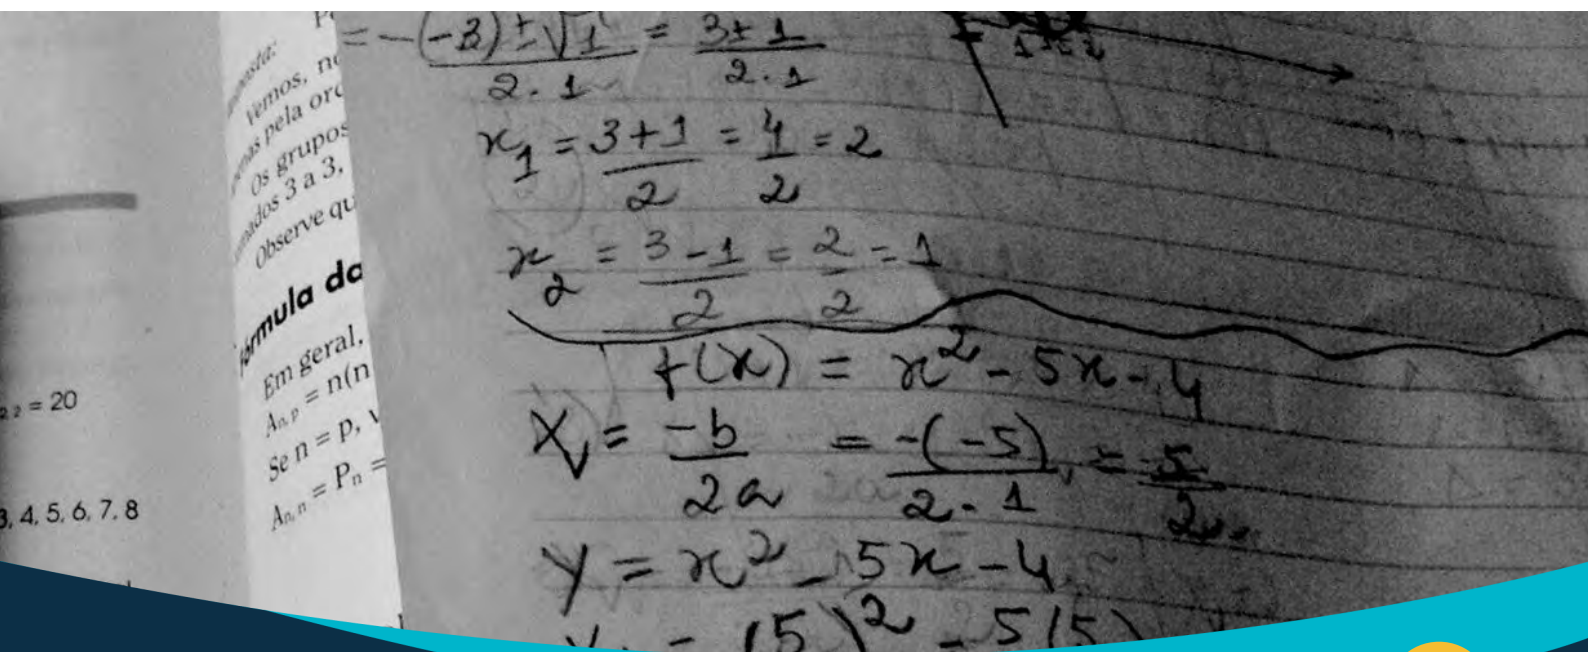 2 = 20
3, 4, 5, 6, 7, 8
Vemos, no
pela orc
Os grupos
3 a 3,
Observe qu
fórmula da
Em geral,
Aₙ,ₚ = n(n
Se n = p,
Aₙ,ₙ = Pₙ =
= -(-3) ± √1 / 2 . 1 = 3 ± 1 / 2 . 1
x₁ = 3 + 1 / 2 = 4 / 2 = 2
x₂ = 3 - 1 / 2 = 2 / 2 = 1
f(x) = x² - 5x - 4
Xᵥ = -b / 2a = -(-5) / 2 . 1 = 5 / 2
y = x² - 5x - 4